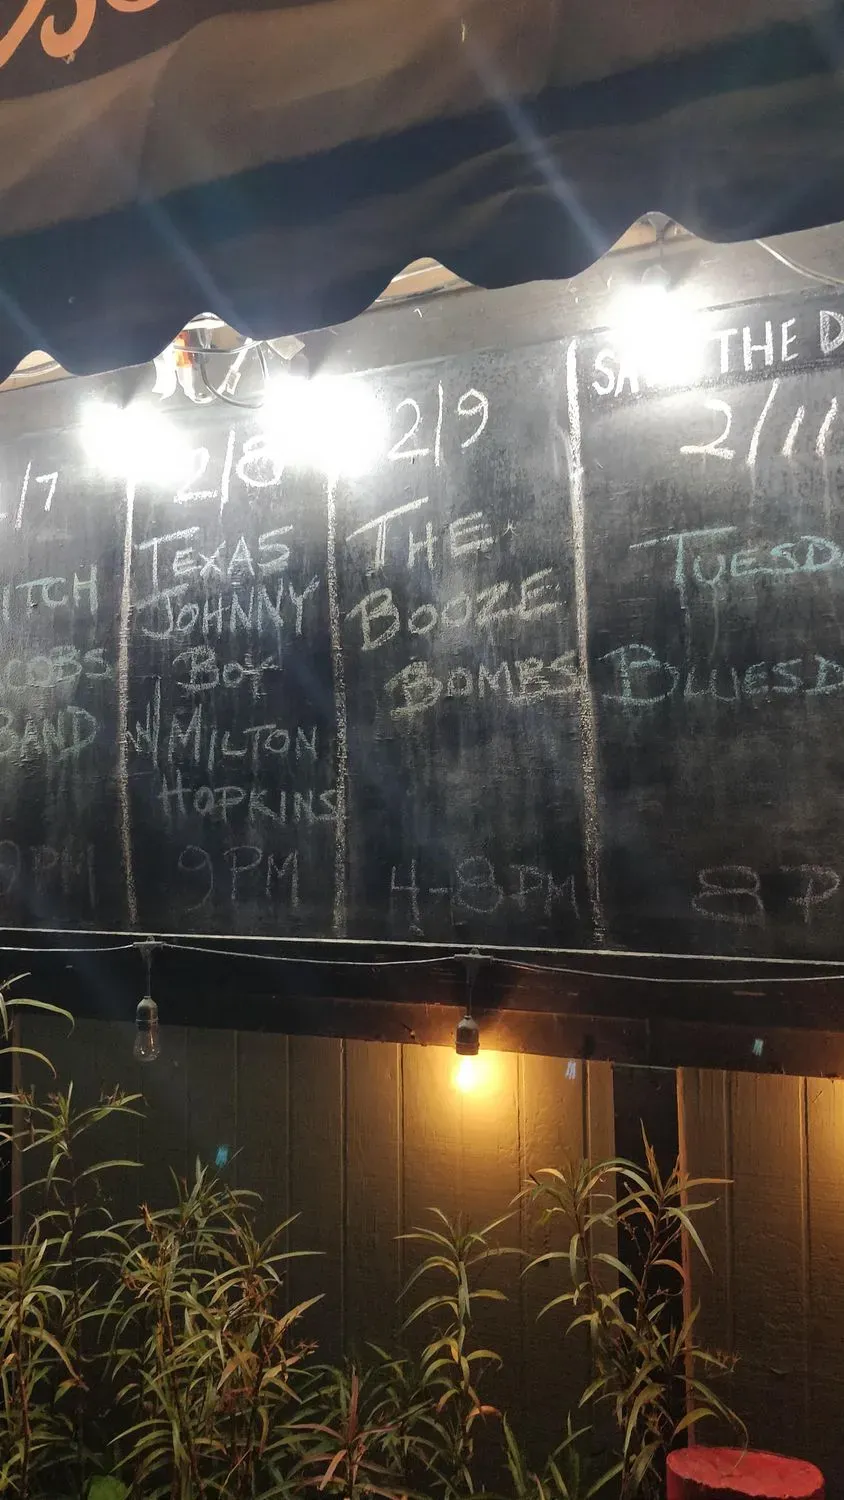 /7
ITCH
COBS
BAND
9PM
2/8
TEXAS
JOHNNY
BOY
W/ MILTON
HOPKINS
9PM
2/9
THE
BOOZE
BOMBS
4-8PM
THE D
2/11
TUESDA
BLUESD
8P